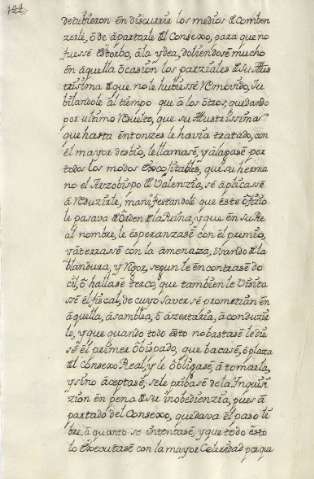 detubieron en discurrir los medios de comben
zerle, ô de apartarle del Consexo, para que no
fuesse estorbo, â la ydea, doliendose mucho
en aquella ôcasion los parziales de su Illus
trissima de que no le hubiesse removido, Ju
bilandole al tiempo que â los ôtros; quedando
por ultimo resuelto, que su Illustrissima
que hasta entonzes le havia tratado, con
el mayor desvio, le llamase, y alagase por
todos los modos que su herma
no el Arzobispo de Valenzia, se aplicasse
â reduzirle, manifestandole que este ofizio
le pasava de orden de la Reina, y que en su Re
al nombre, le esperanzase con el premio,
y aterrase con la amenaza, usando de la
blandura, y rigor, segun le encontrase do
cil, ô hallase terco; que tambien le visita
sse el fiscal, de cuyo saver se prometian en
aquella, asamblea, ô azertaria, â conduzir
le, y que quando todo esto no bastase le die
sse el primer obispado, que bacase, ô plaza
del Consexo Real, y le obligase, â tomarla,
y sino azeptase, se le pribase de la Inquisi
zion en pena de su inobedienzia, pues a
partado del Consexo, quedava el paso li
bre, â quanto se intentase, y que todo esto
lo executase con la mayor Celeridad porque